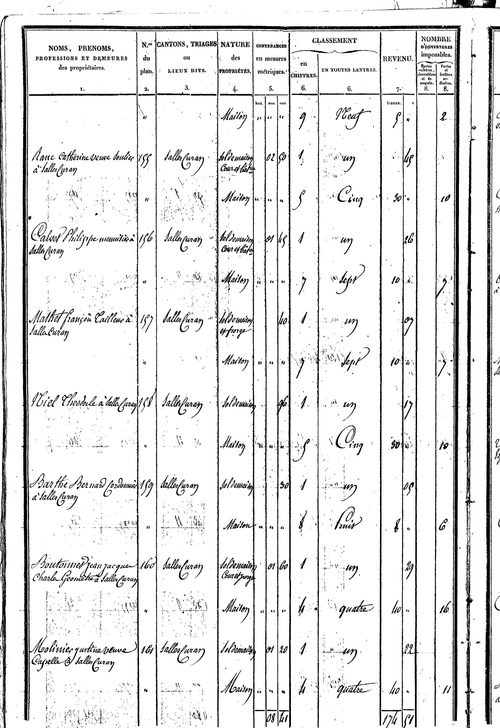 NOMS, PRENOMS, PROFESSIONS ET DEMEURES des propriétaires. N.os du plan. CANTONS, TRIAGES ou LIEUX DITS. NATURE des PROPRIÉTÉS. CONTENANCES en mesures métriques. CLASSEMENT en CHIFFRES. EN TOUTES LETTRES. REVENU. NOMBRE D'OUVERTURES imposables.
1. 2. 3. 4. 5. 6. 6. 7. 8. 8.
" Maison " " " 9 Neuf 5 " 2
Ranc Catherine veuve 155 Salles Curan Sol de maison 02 50 1 un 45
à Salles Curan Cour et
" Maison " " " 5 Cinq 30 " 10
Calvet Philippe menuisier à 156 Salles Curan Sol de maison 01 45 1 un 26
Salles Curan Cour et
" Maison " " " 7 Sept 10 " 7
Mathet françois Tailleur à 157 Salles Curan Sol de maison 40 1 un 07
Salles Curan et forge
" Maison " " " 7 Sept 10 " 7
Niel Theodule à Salles Curan 158 Salles Curan Sol de maison 96 1 un 17
" Maison " " " 5 Cinq 30 " 10
Barthe Bernard Cordonnier 159 Salles Curan Sol de maison 30 1 un 05
à Salles Curan
" Maison " " " 8 huit 8 " 6
Boutonnet jean jacques 160 Salles Curan Sol de maison 01 60 1 un 29
Charles Geometre à Salles Curan Cour et
" Maison " " " 4 quatre 40 " 16
Molinier justine veuve 161 Salles Curan Sol de maison 01 20 1 un 22
Capelle à Salles Curan
" Maison " " " 4 quatre 40 " 11
08 41 174 51